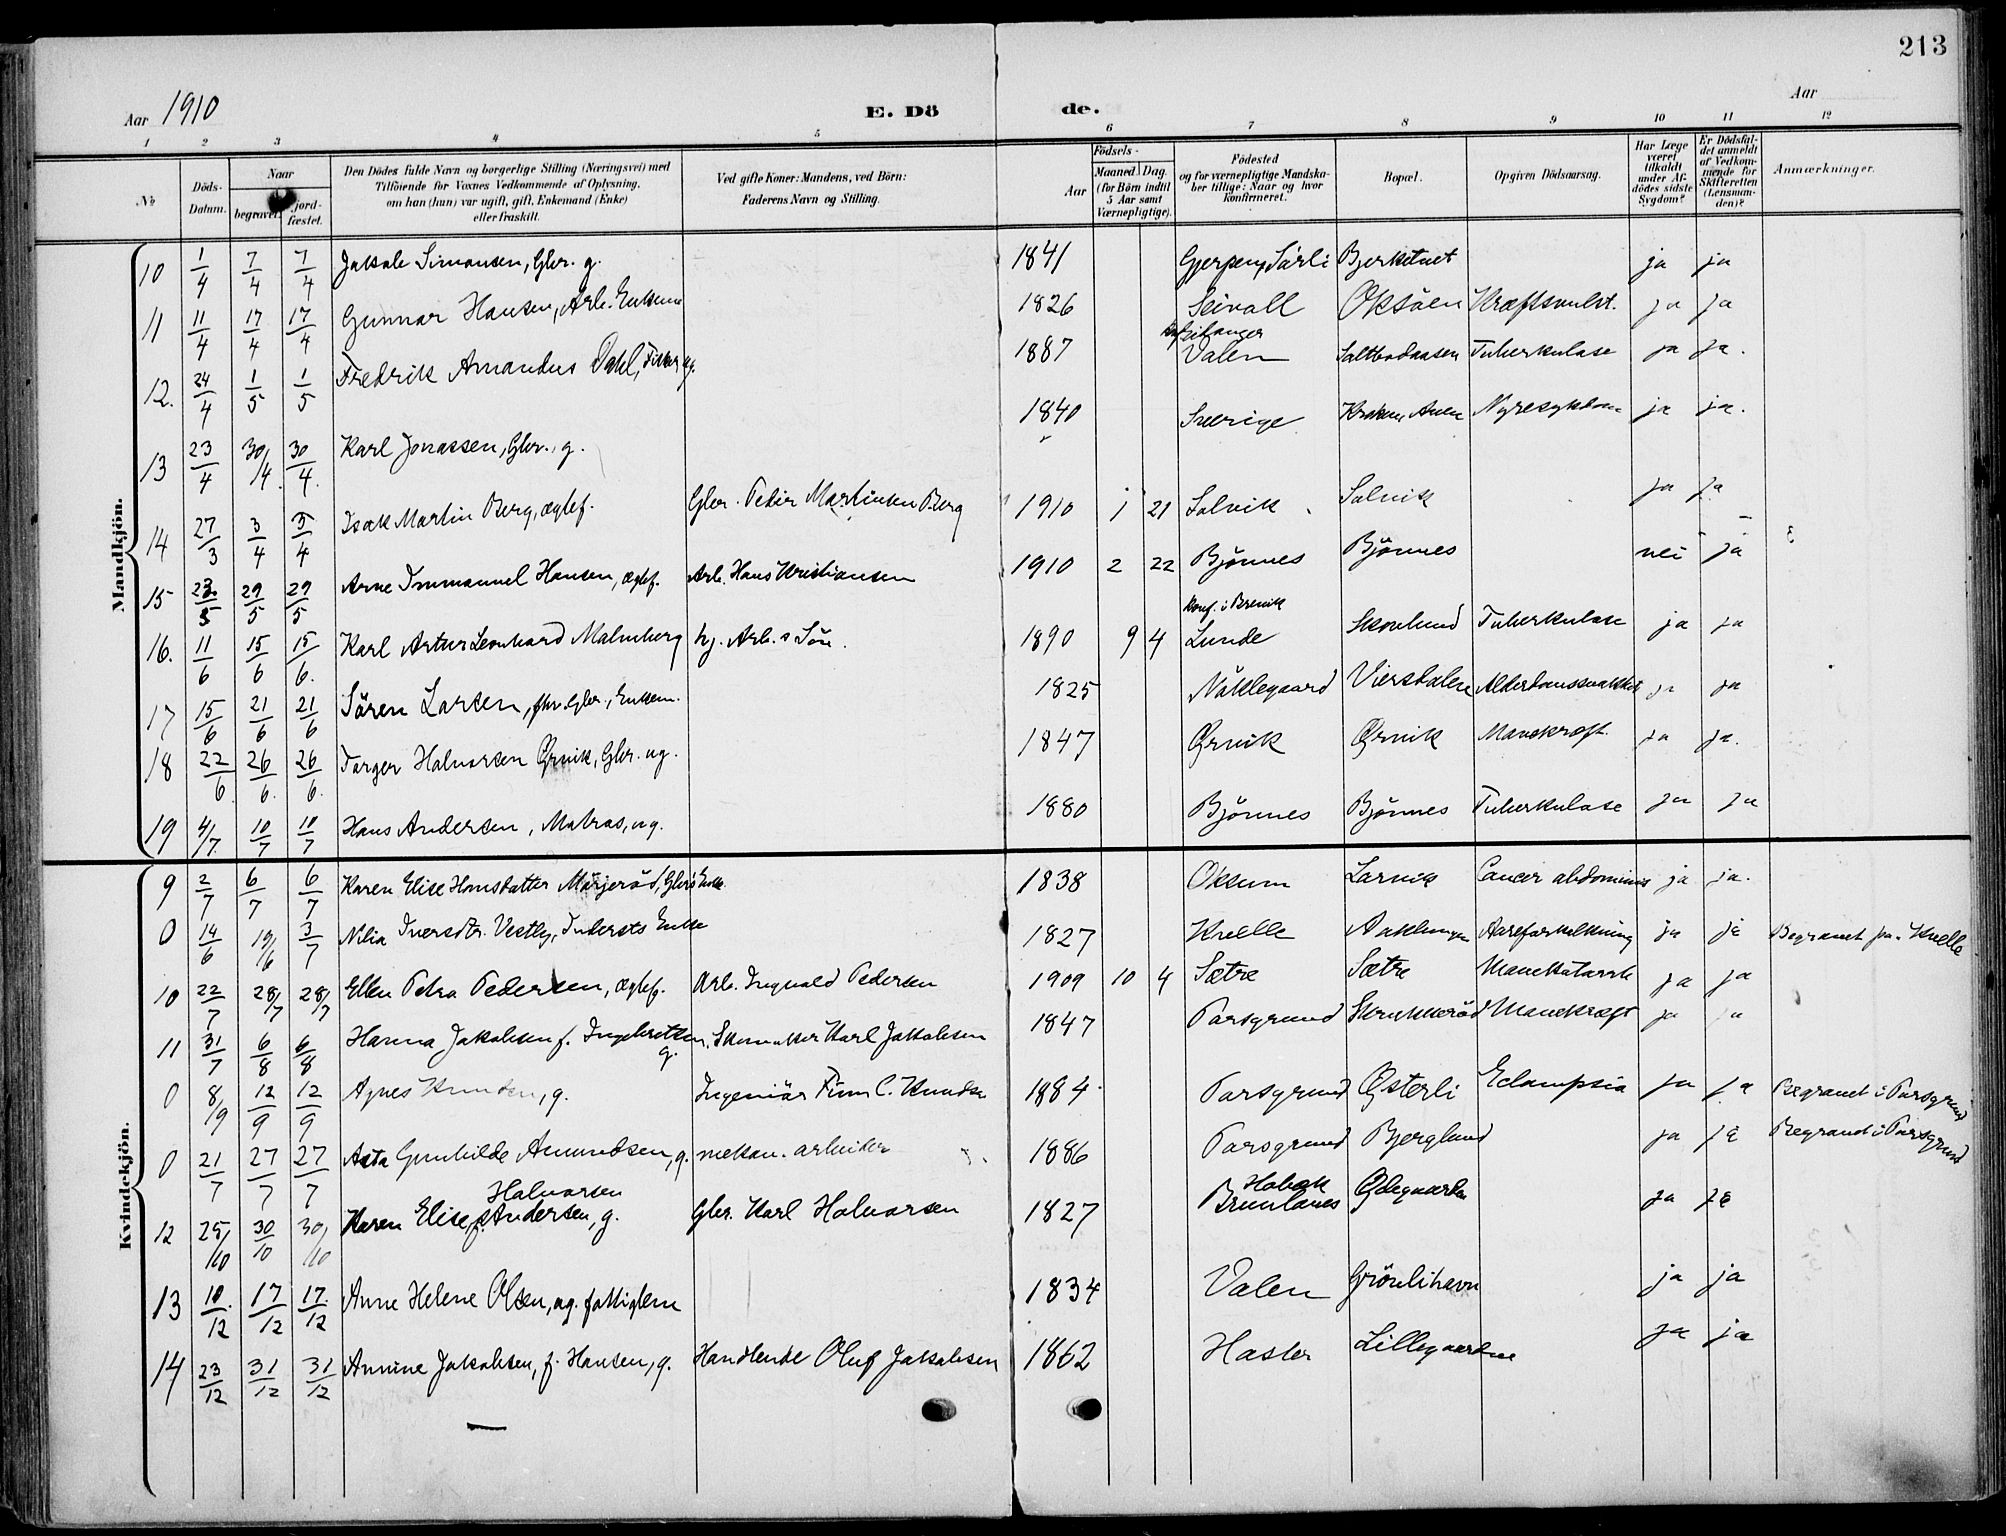 213
Aar 1910
E. Dö de.
Aar
1 2 3 4 5 6 7 8 9 10 11 12
No
Döds-Datum.
Naar
begravet.
jord-fæstet.
Den Dödes fulde Navn og borgerlige Stilling (Næringsvei) med
Tilföiende for Voxnes Vedkommende af Oplysning,
om han (hun) var ugift, gift, Enkemand (Enke)
eller fraskilt.
Ved gifte Koner: Mandens, ved Börn:
Faderens Navn og Stilling.
Födsels-
Aar
Maaned. Dag.
(for Börn indtil
5 Aar samt
Værnepligtige).
Födested
og for værnepligtige Mandska-
ber tillige: Naar og hvor
konfirmeret.
Bopæl.
Opgiven Dödsaarsag.
Har Læge
været
tilkaldt
under Af-
dödes sidste
Sygdom?
Er Dödsfal-
det anmeldt
af Vedkom-
mende for
Skifteretten
(Lensman-
den)?
Anmærkninger.
Mandkjön.
10 1/4 7/4 7/4 Jakob Simonsen, Gbr. g. 1841 Gjerpen, Sörli Bjerketvet ja ja
11 11/4 17/4 17/4 Gunnar Hansen, Arb. Enkem 1826 Seivall Oksöen Kræftsvulst. ja ja
12. 24/4 1/5 1/5 Fredrik Amandus Dahl, Fisker ug. 1887 Valen Saltbodaasen Tuberkulose ja ja.
13 23/4 30/4 30/4 Karl Jonassen, Gbr., g. 1840 Sverige Nyresykdom ja ja.
14 27/3 3/4 3/4 Isak Martin Berg, ægtef. Gbr. Peder Martinsen Berg 1910 1 21 Solvik Solvik ja ja
15 23/5 29/5 29/5 Arne Immanuel Hansen, ægtef. Arb. Hans Kristiansen 1910 2 22 Bjönnes Bjönnes nei ja
16. 11/6 15/6 15/6. Karl Artur Leonhard Malmberg ug. Arb.s Sön. 1890 9 4 Konf. i Brevik Lunde Skovlund Tuberkulose ja ja
17 15/6 21/6 21/6 Sören Larsen, fhv. Gbr., Enkem. 1825 Nöklegaard Viersdalen Alderdomssvakhet ja ja
18 22/6. 26/6. 26/6. Torger Halvorsen Ørvik, Gbr. ug. 1847 Ørvik Ørvik Mavekræft. ja ja.
19 4/7. 10/7 10/7 Hans Andersen, Matros, ug. 1880 Bjönnes Bjönnes Tuberkulose ja ja
Kvindekjön.
9 2/7 6/7 6/7 Karen Elise Hansdatter Mörjeröd, Gbrs Enke. 1838 Oksum Larvik Cancer abdominis ja ja.
0 14/6 19/6 3/7 Nilia Iversdtr. Vestby, Indersts Enke 1827 Kvelle Aaklungen Aareforkalkning ja ja Begravet paa Kvelle
10 22/7 28/7 28/7 Ellen Petra Pedersen, ægtef. Arb. Ingvald Pedersen 1909 10 4 Sætre Sætre Mavekatarrh ja ja
11 31/7 6/8 6/8 Hanna Jakobsen f. Ingebretsen, g. Skomaker Karl Jakobsen 1847 Porsgrund Skrukkeröd Mavekræft ja ja
0 8/9 12/9 12/9 Agnes Knudsen, g. Ingeniör Finn C. Knudsen 1884 Porsgrund Østerli Eclampsia ja ja Begravet i Porsgrund
0 21/7 27/7 27/7 Asta Gunhilde Amundsen, g. mekan. arbeider 1886 Porsgrund Bjerglund ja ja Begravet i Porsgrund
12 25/10 30/10 30/10 Karen Elise Halvorsen f. Andersen, g. Gbr. Karl Halvorsen 1827 Brunlanes Ødegaarden ja ja
13 10/12 17/12 17/12 Anne Helene Olsen, ug. fattiglem 1834 Valen Grönlihavn ja ja
14 23/12 31/12 31/12 Annine Jakobsen, f. Hansen, g. Handlende Oluf Jakobsen 1862 Hasler Lillegaarden ja ja